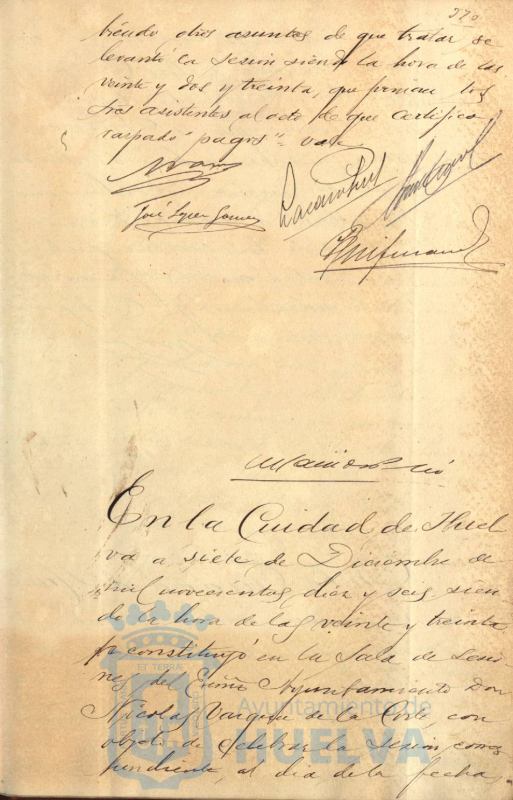 370
biendo otros asuntos de que tratar se
levantó la sesion siendo la hora de las
veinte y dos y treinta, que firman los
Sres asistentes al acto de que certifico
raspado "pagos" vale
José López Gomez
En la Cuidad de Huel
va a siete de Diciembre de
mil novecientos diez y seis sien
do la hora de las veinte y treinta
se constituyó en la Sala de Sesio
nes del Excmo Ayuntamiento Don
Nicolas Vazquez de la Corte, con
objeto de celebrar la sesion corres
pondiente, al dia de la fecha,
ET TERRAE
Ayuntamiento de
HUELVA